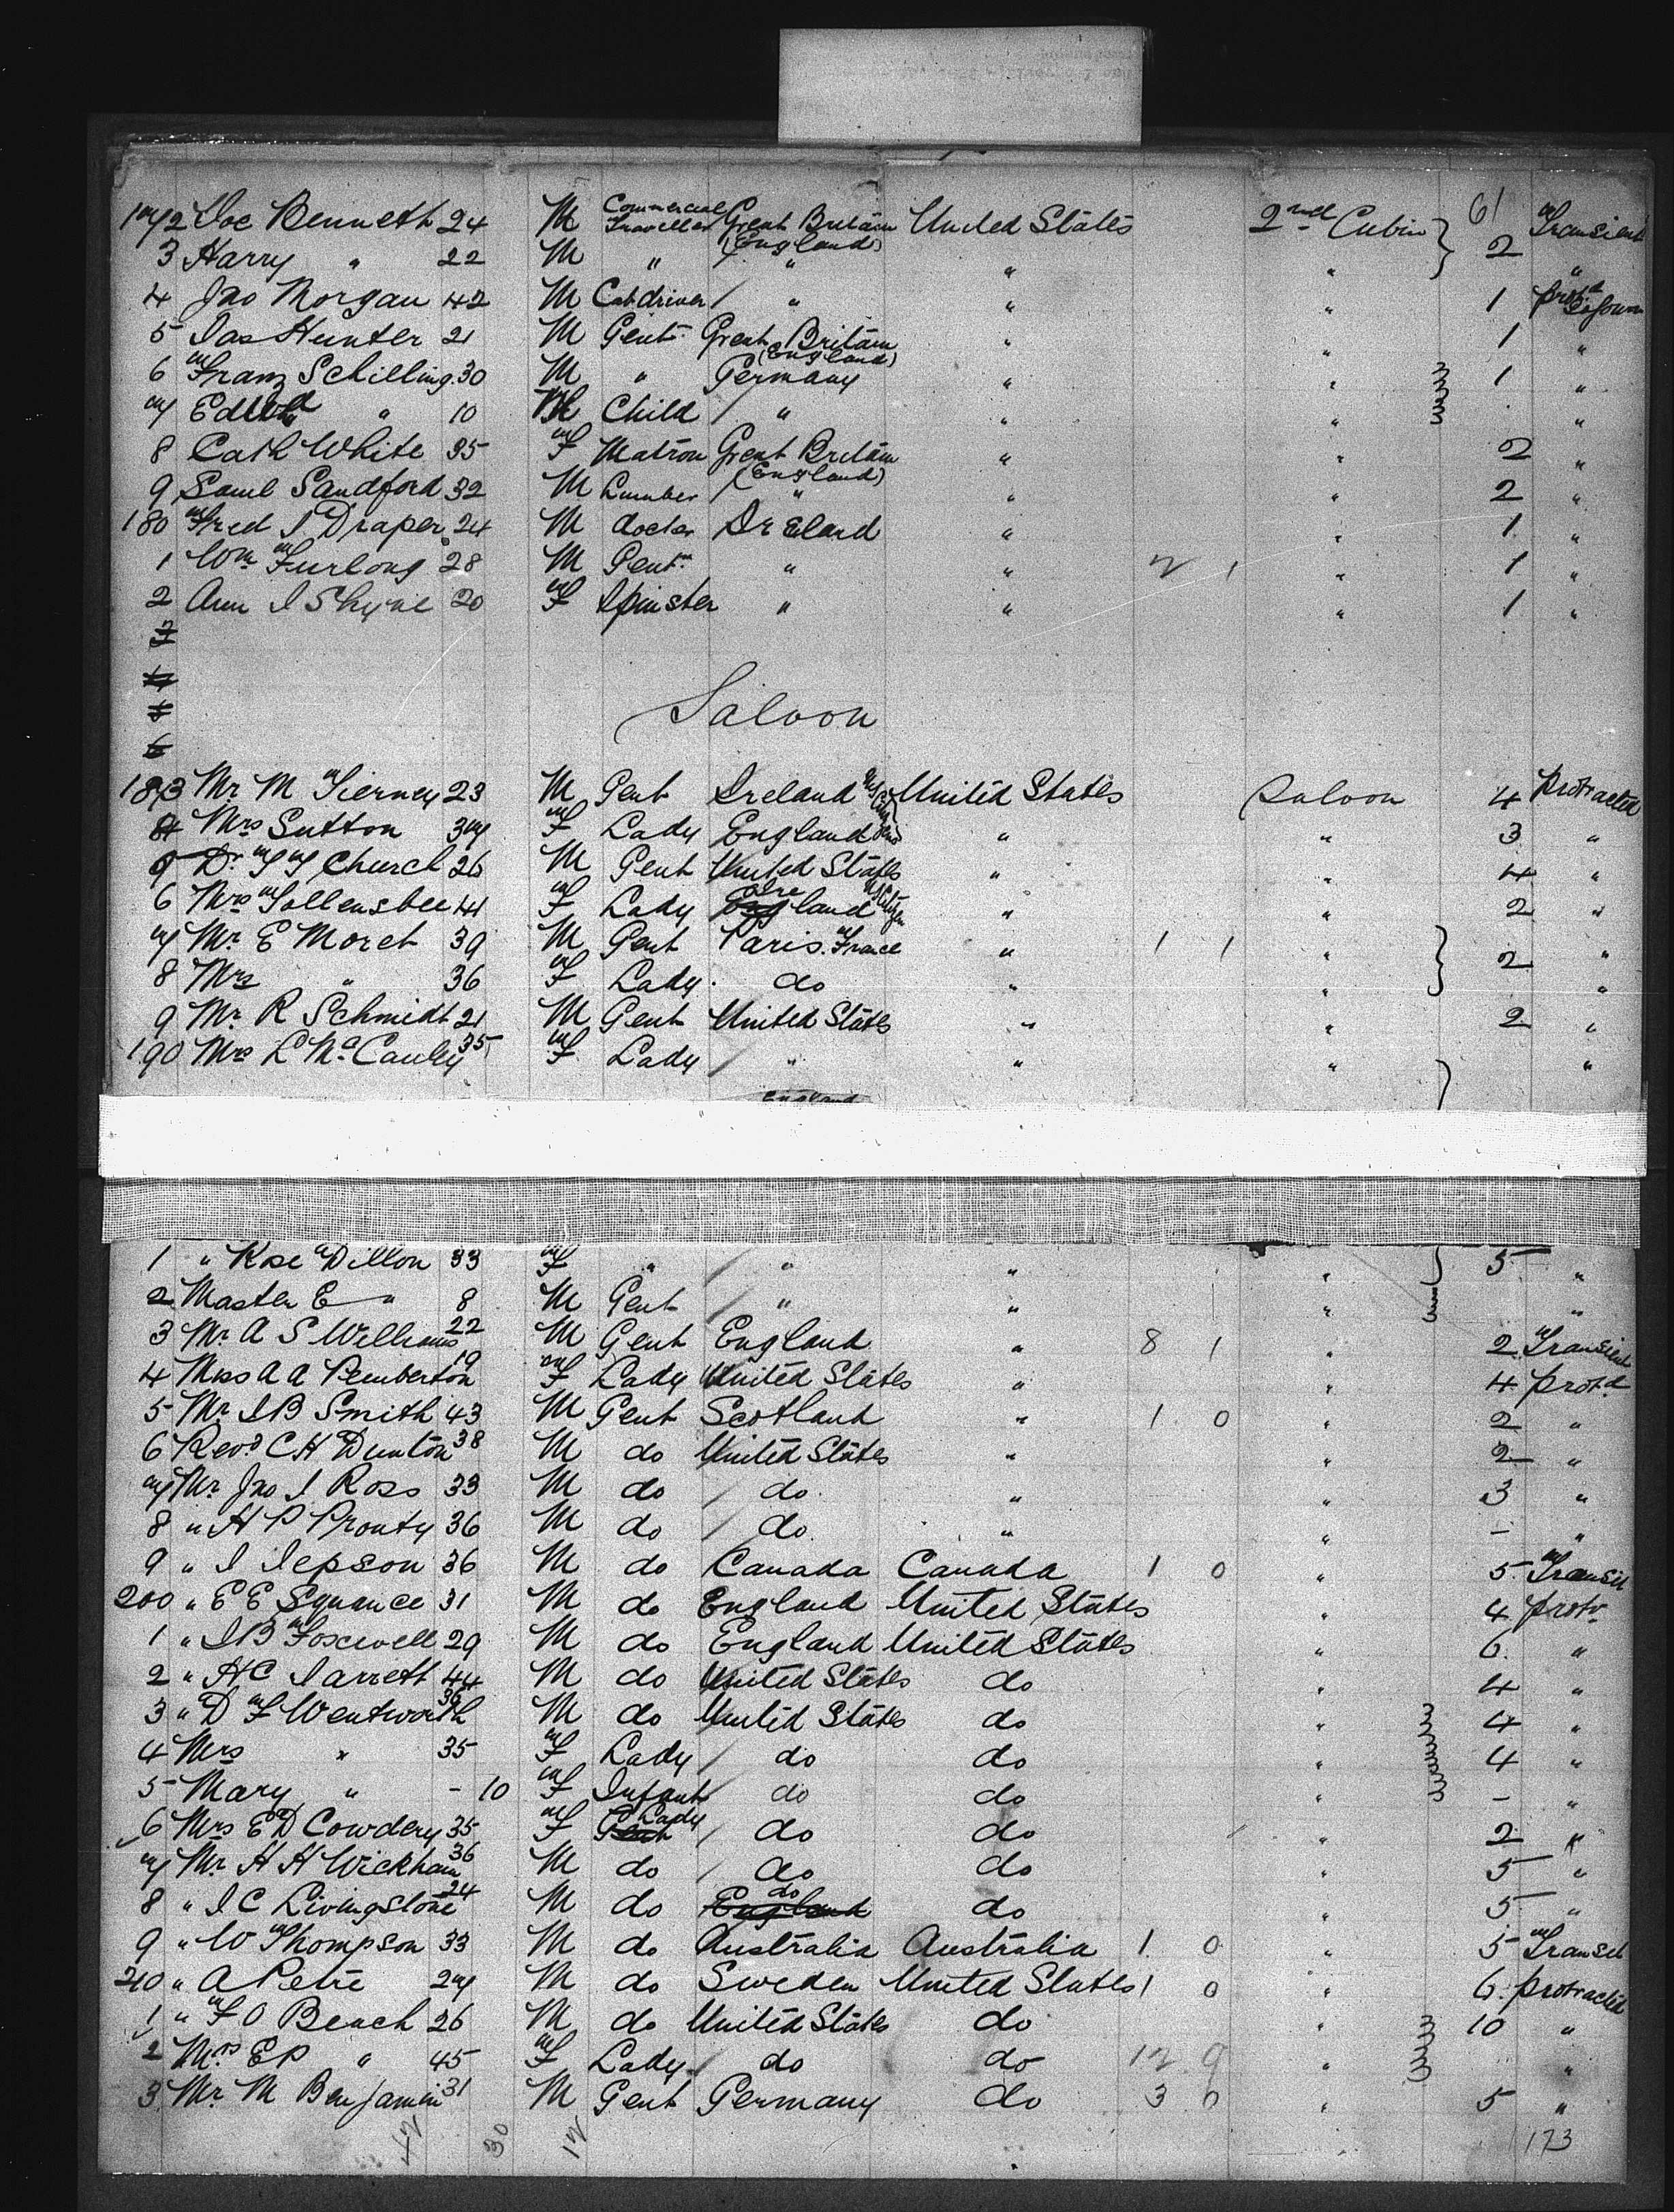 61
172 Joe Benneth 24 M Commercial Traveller Great Britain (England) United States 2nd Cabin } Transient
3 Harry " 22 M " " " " 2 "
4 Jno Morgan 42 M Cab driver " " " 1 prot.d
5 Jas Hunter 21 M Gent. Great Britain (England) " " 1 "
6 Franz Schilling 30 M " Germany " " 1 "
7 10 M Child " " " "
8 Cath White 35 F Matron Great Britain (England) " " 2 "
9 Saml Sandford 32 M " " " 2 "
180 Fred J Draper 24 M doctor Ireland " " 1 "
1 Wm Furlong 28 M Gent. " " 1 " 1 "
2 Ann J Shyne 20 F Spinster " " " 1 "
3
4
5 Saloon
6
183 Mr M Tierney 23 M Gent Ireland United States Saloon 4 Protracted
84 Mrs Sutton 37 F Lady England " " 3 "
5 Dr T T Church 26 M Gent United States " " 4 "
6 Mrs Tollensbee 41 F Lady Ireland US Citizen " " 2 "
7 Mr E Moret 39 M Gent Paris. France " 1 1 " } 2 "
8 Mrs " 36 F Lady. do " " "
9 Mr R Schmidt 21 M Gent United States " " 2 "
190 Mrs L McCauley 35 F Lady " " " "
England
1 " Rose Dillon 33 F " " " " } 5 "
2 Master E " 8 M Gent " " " "
3 Mr A S Williams 22 M Gent England " 8 1 " 2 Transient
4 Miss A A Pemberton 19 F Lady United States " " 4 prot.d
5 Mr J B Smith 43 M Gent Scotland " 1 0 " 2 "
6 Revd C H Dunton 38 M do United States " " 2 "
7 Mr Jno J Ross 33 M do do " " 3 "
8 " H P Prouty 36 M do do " " - "
9 " J Jepson 36 M do Canada Canada 1 0 " 5 Transit
200 " E E Squance 31 M do England United States " 4 protr
1 " J B Foxwell 29 M do England United States " 6. "
2 " H C Jarrett 44 M do United States do " 4 "
3 " D F Wentworth 36 M do United States do " 4 "
4 Mrs " 35 F Lady do do " 4 "
5 Mary " - 10 F Infant do do " - "
6 Mrs E D Cowdery 35 F Gent Lady do do " 2 "
7 Mr H H Wickham 36 M do do do " 5 "
8 " J C Livingstone 24 M do England do do " 5 "
9 " W Thompson 33 M do Australia Australia 1 0 " 5 Transit
210 " A Petre 27 M do Sweden United States 1 0 " 6. protracted
1 " F O Beach 26 M do United States do " 10 "
2 Mrs E P " 45 F Lady do do 12 9 " "
3 Mr M Benjamin 31 M Gent Germany do 3 0 " 5 "
30 173